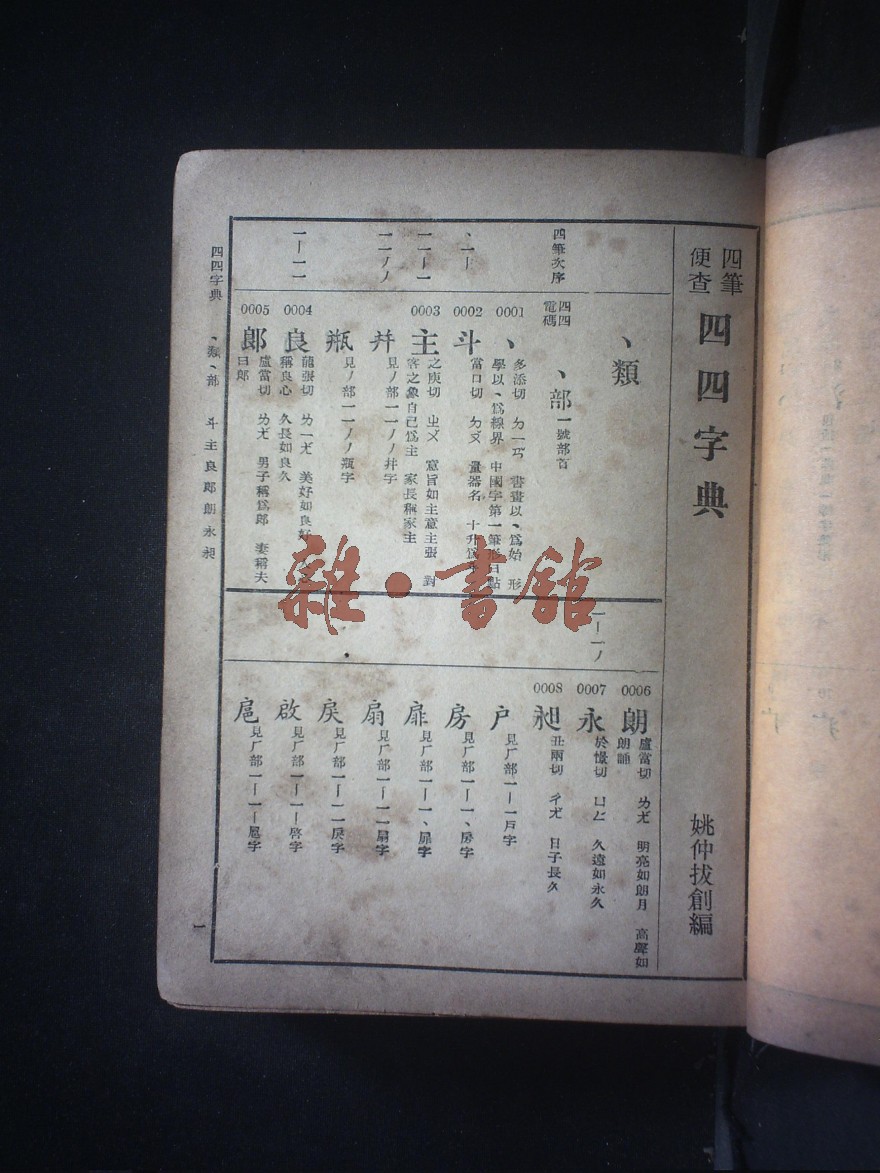 四筆
便查
四四字典
姚仲拔創編
、類
四筆次序
四四
電碼
、部 一號部首
0001
、 多添切 ㄉㄧㄢ 書畫以、爲始 形
學以、爲線界 中國字第一筆形曰點
、一丨
0002
斗 當口切 ㄉㄡ 量器名 十升爲
0003
主 之庾切 ㄓㄨ 意旨如主意主張 對
客之象自己爲主 家長稱家主
并 見丿部一一丿丿并字
瓶 見丿部一一丿丿瓶字
0004
良 龍張切 ㄌㄧㄤ 美好如良好
稱良心 久長如良久
0005
郎 盧當切 ㄌㄤ 男子稱爲郎 妻稱夫
曰郎
0006
朗 盧當切 ㄌㄤ 明亮如朗月 高聲如
朗誦
0007
永 於憬切 ㄩㄥ 久遠如永久
0008
昶 丑兩切 ㄔㄤ 日子長久
户 見厂部一丨一戶字
房 見厂部一丨一、房字
扉 見厂部一丨一、扉字
扇 見厂部一丨一一扇字
戾 見厂部一丨一一戾字
啟 見厂部一丨一丨啓字
扈 見厂部一丨一丨扈字
四四字典 、類、部 斗主良郎朗永昶
一
雜·書館